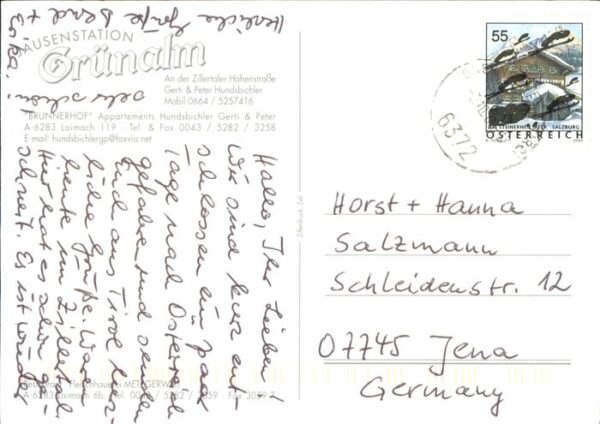 JAUSENSTATION
Grünalm
An der Zillertaler Höhenstraße
Gerti & Peter Hundsbichler
Mobil 0664 / 5257416
"BRUNNERHOF" Appartements Hundsbichler Gerti & Peter
A-6283 Laimach 119 · Tel. & Fax 0043 / 5282 / 3258
E-mail: hundsbichlergp@foxvia.net
Hallo, Ihr Lieben!
Wir sind kurz ent-
schlossen ein paar
Tage nach Österreich
gefahren und senden
Euch aus Tirol herz-
liche Grüße. Waren
heute im Zillertal.
Hier hat es schön ge-
schneit. Es ist wieder
sehr schön.
Herzliche Grüße Bernd +
Fleischhauerei METZGERWIRT
A-6283 Laimach 6b Tel. 5282 Fax
55
SALZBURG
ÖSTERREICH
6372
Horst + Hanna
Salzmann
Schleidenstr. 12
07745 Jena
Germany